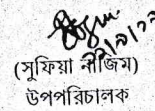 (সুফিয়া নাজিম)
উপপরিচালক